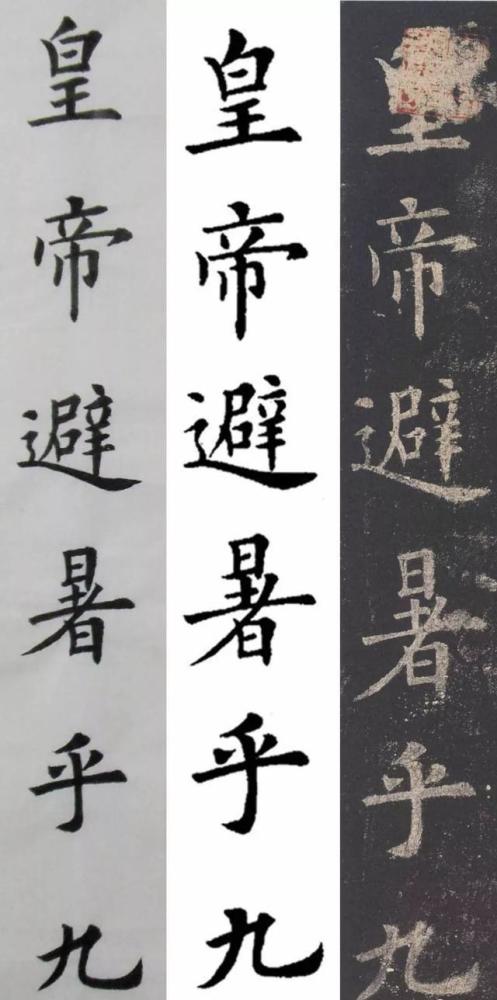 皇帝避暑乎九
皇帝避暑乎九
皇帝避暑乎九